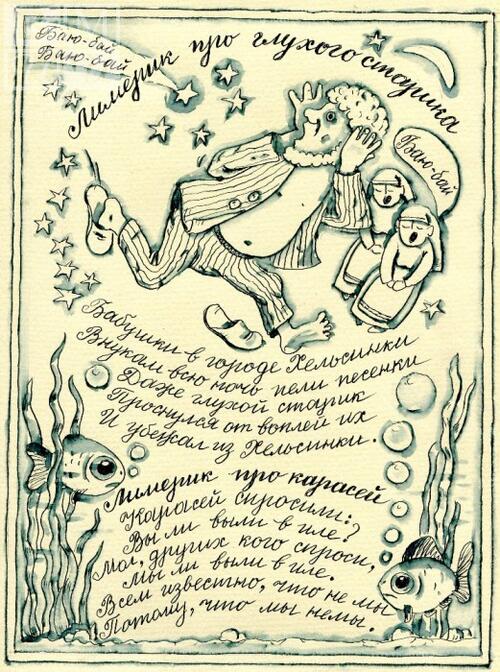 Баю-бай
Баю-бай
Лимерик про глухого старика
Баю-бай
Бабушки в городе Хельсинки
Внукам всю ночь пели песенки
Даже глухой старик
Проснулся от воплей их
И убежал из Хельсинки.
Лимерик про карасей
Карасей спросили:
Вы ли выли в иле?
Мол, других кого спроси,
Мы ли выли в иле.
Всем известно, что не мы
Потому, что мы немы.